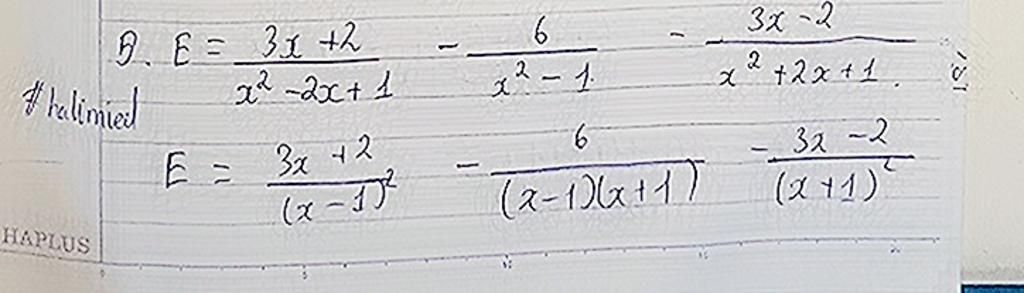 5. E = (3x + 2)/(x² - 2x + 1) - 6/(x² - 1) - (3x - 2)/(x² + 2x + 1).
# halimied
E = (3x + 2)/(x - 1)² - 6/((x - 1)(x + 1)) - (3x - 2)/(x + 1)²
HAPLUS